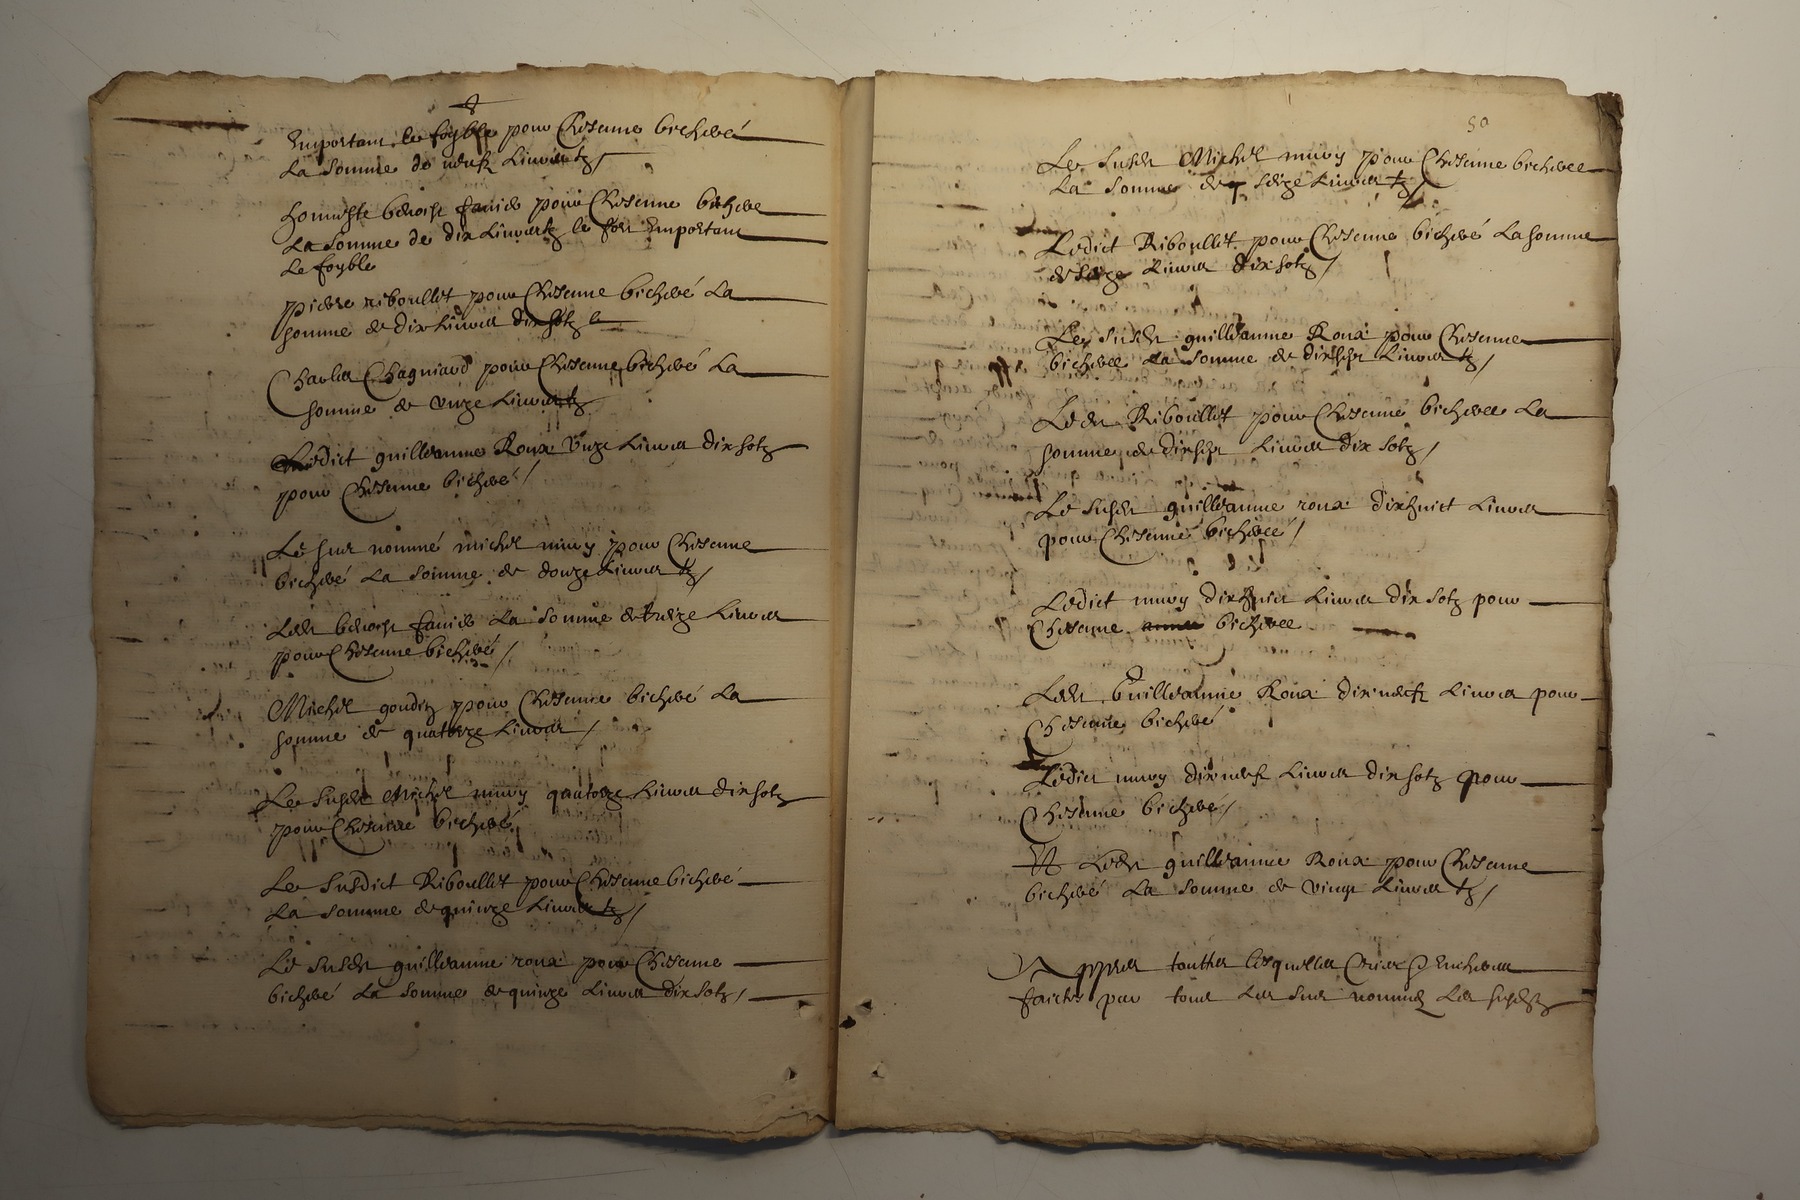 Emportant le foyble pour Chescune bicheré
La somme de neufz Livres tz /
honneste benoist faure pour Chescune bicheré
La somme de dix Livres tz le fort Emportant
Le foyble
pierre riboullet pour Chescune bicheré La
somme de dix Livres dix sotz
Charles Chagniard pour Chescune bicheré La
somme de unze Livres tz
Ledict guilleaume Roux Unze Livres dix sotz
pour Chescune bicheré /
Le sus nommé michel mury pour Chescune
bicheré La somme de douze Livres tz /
Ledt benoist faure La somme de treize Livres
pour Chescune bicheré /
Michel goudin pour Chescune bicheré La
somme de quatorze Livres /
Le susdt Michel mury quatorze Livres dix sotz
pour Chescune bicheré
Le susdict Riboullet pour Chescune bicheré
La somme de quinze Livres tz /
Le susdt guilleaume roux pour Chescune
bicheré La somme de quinze Livres dix sotz /
50
Le susdt Michel mury pour Chescune bicheree
La somme de seize Livres tz /
Ledict Riboullet pour Chescune bicheré La somme
de seize Livres dix sotz /
Le susdt guilleaume Roux pour Chescune
bicheree La somme de dixsept Livres tz /
Ledt Riboullet pour Chescune bicheree La
somme de dixsept Livres dix sotz /
Le susdt guilleaume roux dixhuict Livres
pour Chescune bicheree /
Ledict mury dixhuict Livres dix sotz pour
Chescune bicheree
Ledt Guilleaume Roux dixneufz Livres pour
Chescune bicheré
Ledict mury dixneufz Livres dix sotz pour
Chescune bicheré /
Et Ledt guilleaume Roux pour Chescune
bicheré La somme de vingt Livres tz /
Appres touttes lesquelles Criees & Encheres
faictes par tous Les sus nommez Les susdtz